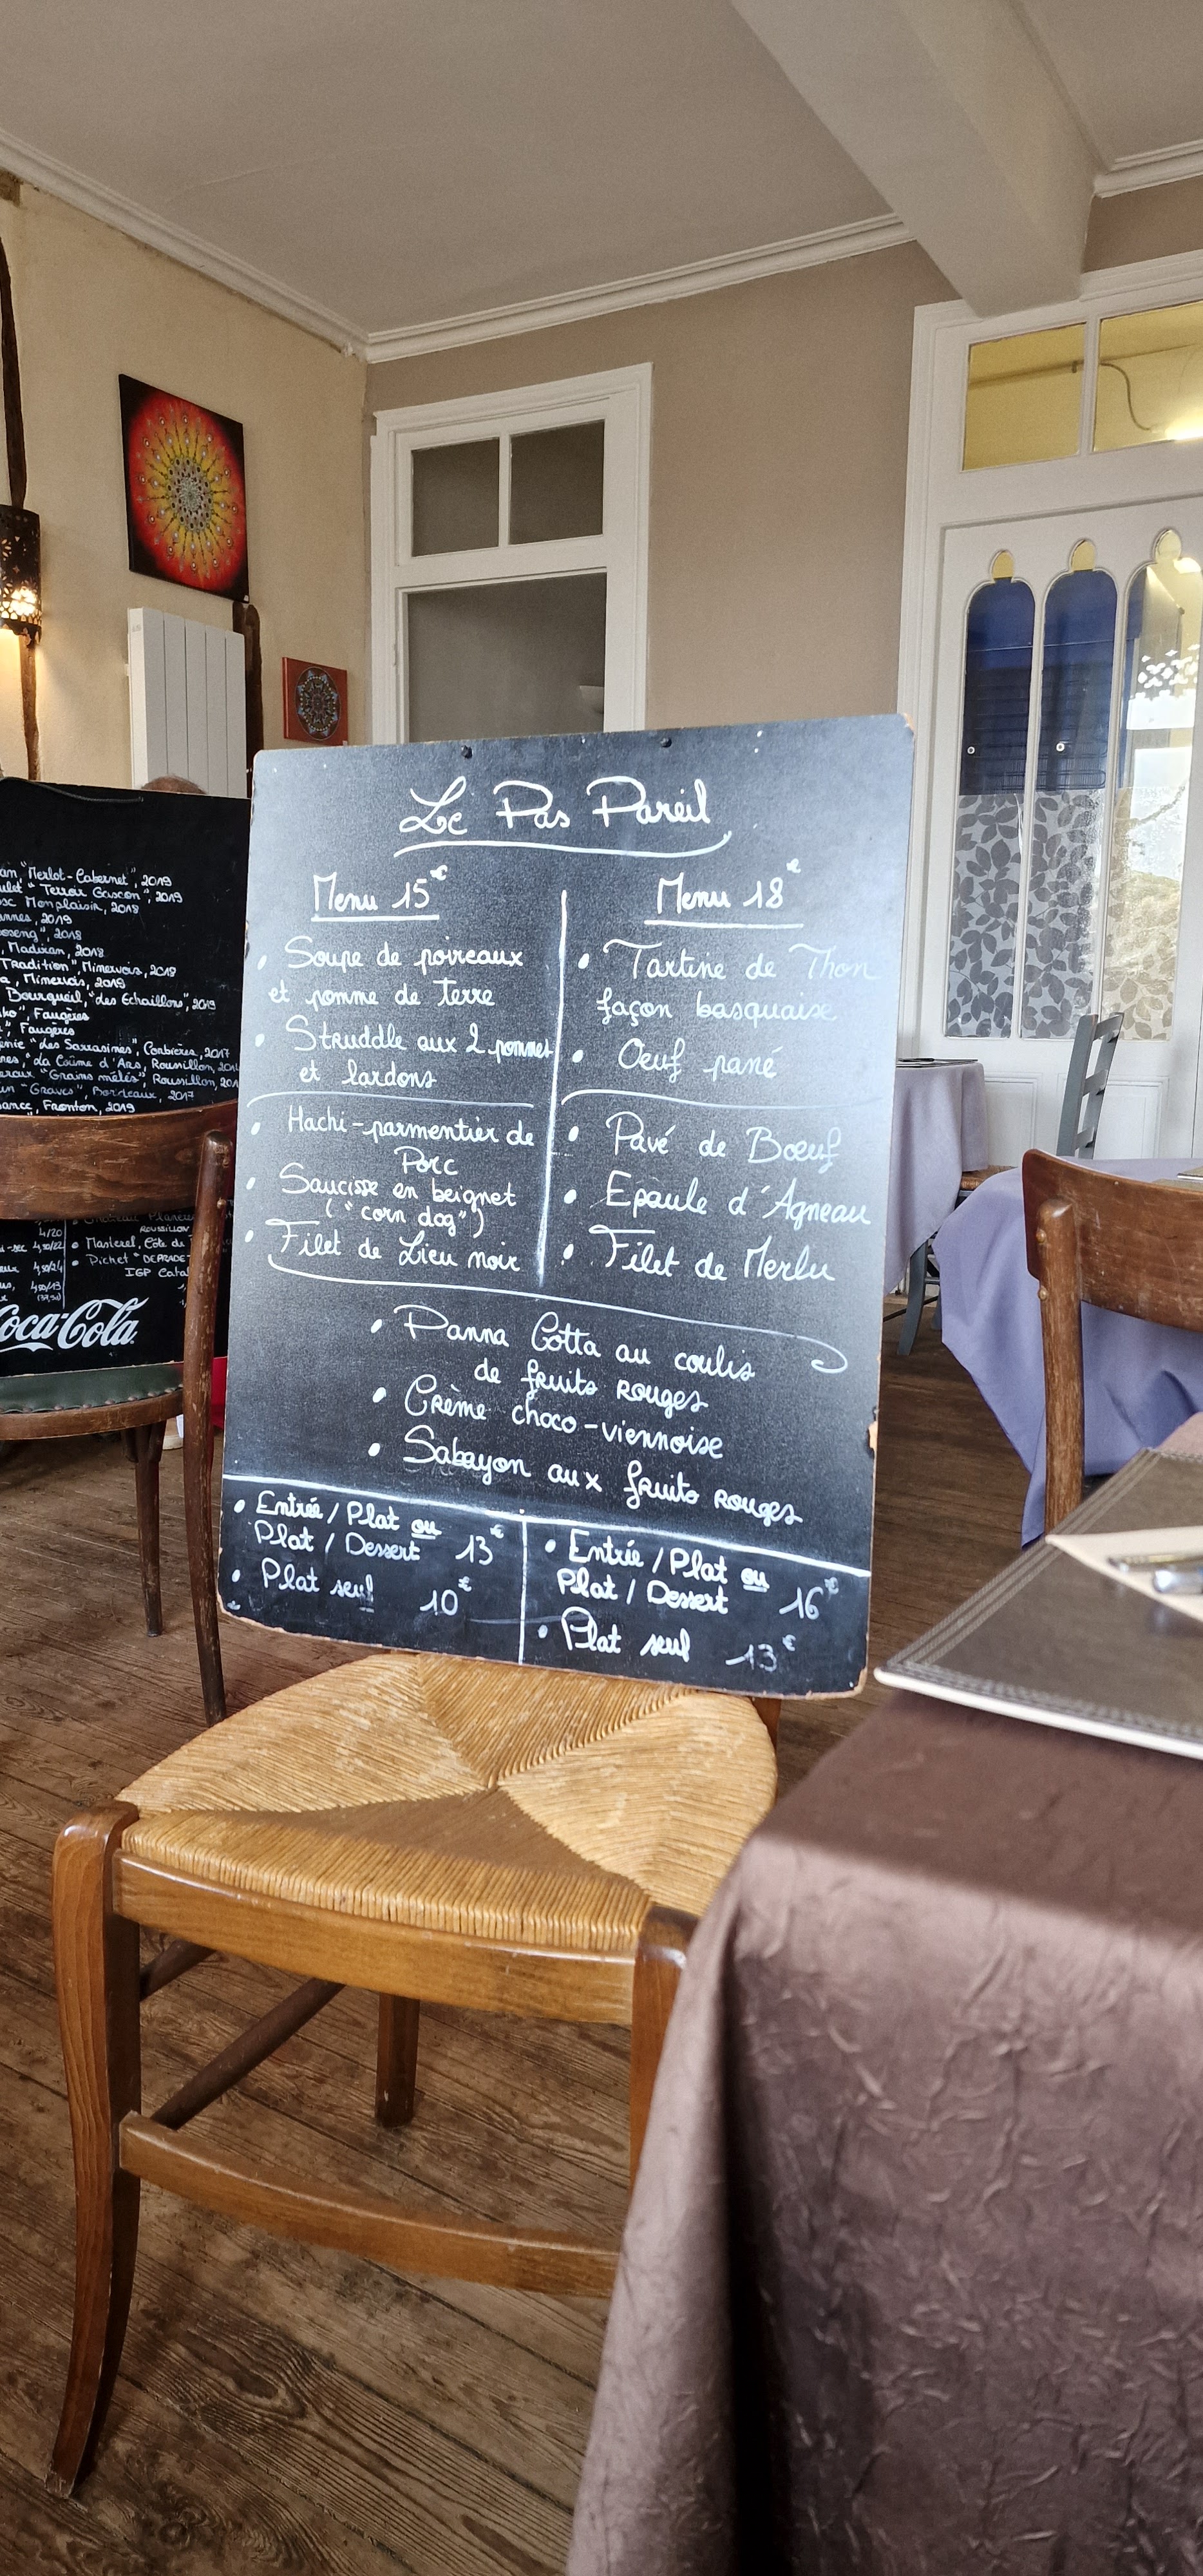 Le Pas Pareil
Menu 15€
• Soupe de poireaux
et pomme de terre
• Struddle aux 2 pommes
et lardons
• Hachi-parmentier de
Porc
• Saucisse en beignet
("corn dog")
• Filet de Lieu noir
Menu 18€
• Tartine de Thon
façon basquaise
• Oeuf pané
• Pavé de Bœuf
• Epaule d'Agneau
• Filet de Merlu
• Panna Cotta au coulis
de fruits rouges
• Crème choco-viennoise
• Sabayon aux fruits rouges
• Entrée / Plat ou
Plat / Dessert 13€
• Plat seul 10€
• Entrée / Plat ou
Plat / Dessert 16€
• Plat seul 13€
"Merlot-Cabernet", 2019
"Terroir Gascon", 2019
Monplaisir, 2018
2019
2018
, Madiran, 2018
Tradition", Minervois, 2018
, Minervois, 2019
Bourgueil, "des Echaillons", 2019
", Faugères
", Faugères
"des Sarrasines", Corbières, 2017
"La Coûme d'Ars, Roussillon, 201
"Grains mêlés", Roussillon, 201
"Graves", Bordeaux, 2017
, Fronton, 2019
ROUSSILLON
4/20
• Masterel, Côte du
• Pichet "DEPRADE
IGP Cata
Coca-Cola